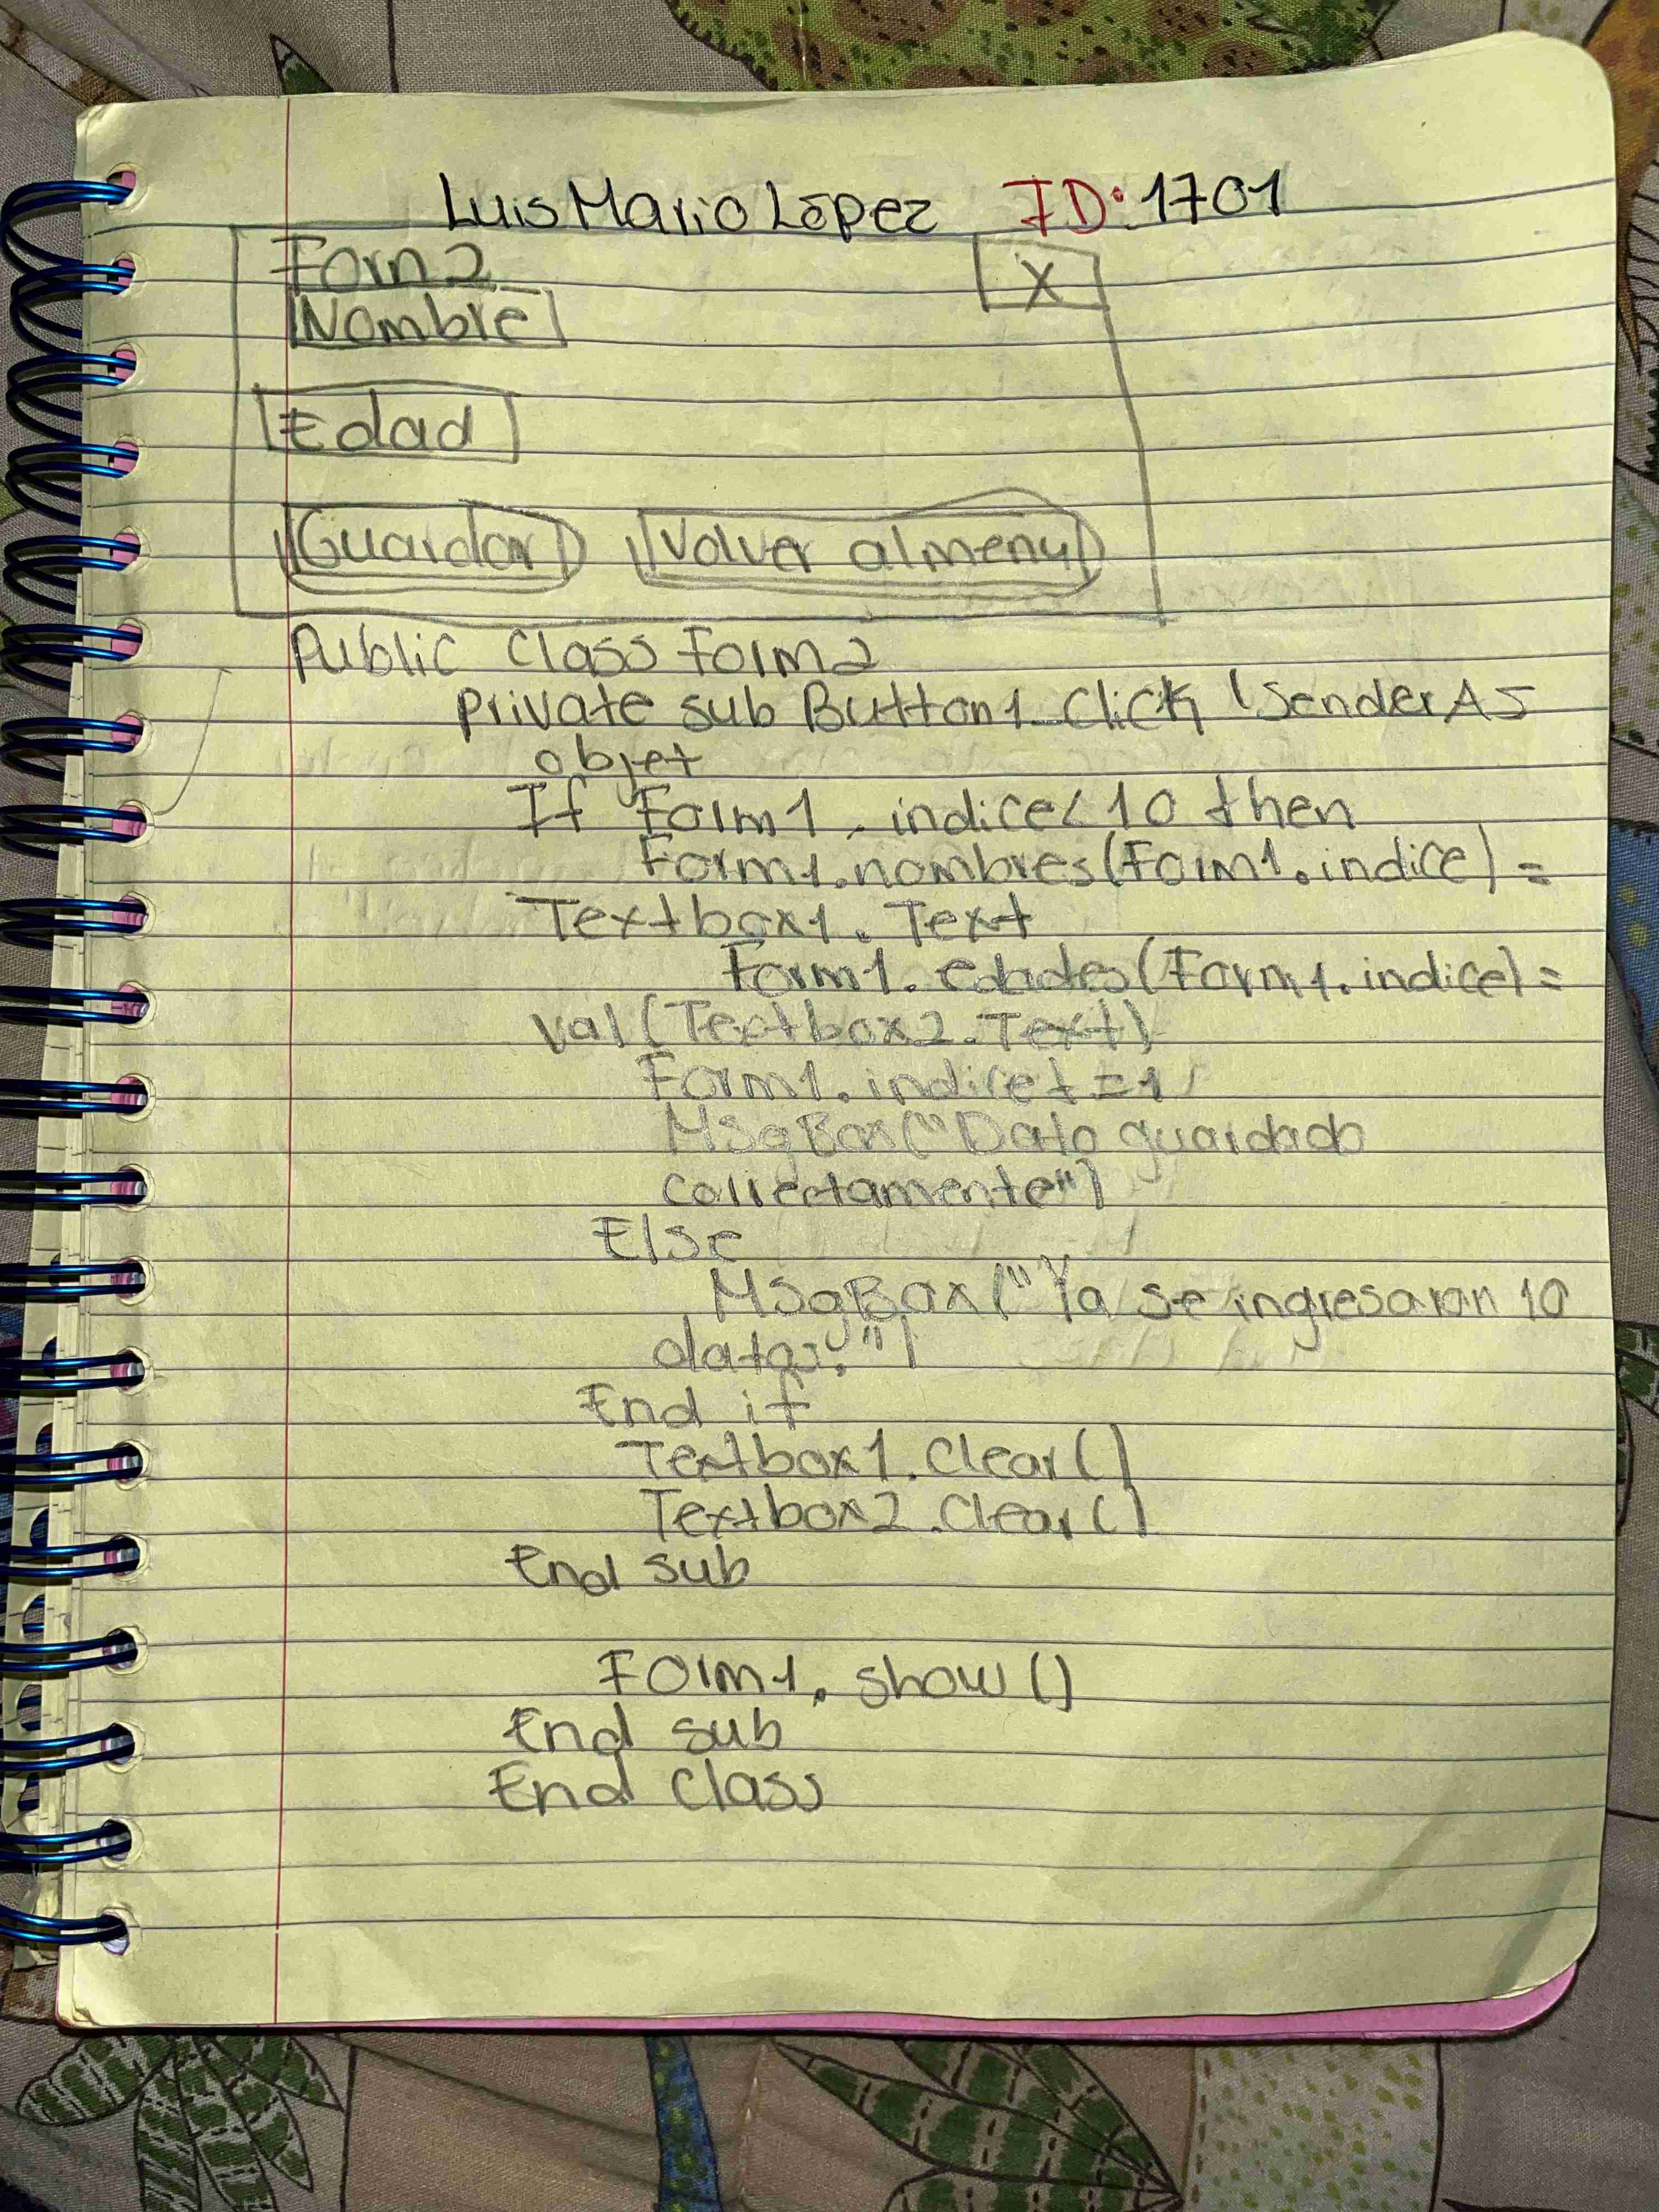 Luis Mario López ID: 1701
Form2 X
Nombre
Edad
Guardar Volver al menu
Public Class Form2
private sub Button1_Click (Sender As
objet
If Form1. indice < 10 then
Form1.nombres(Form1.indice) =
Textbox1. Text
Form1. edades(Form1.indice) =
val(Textbox2.Text)
Form1.indice += 1
MsgBox("Dato guardado
correctamente")
Else
MsgBox("Ya se ingresaron 10
datos.")
End if
Textbox1.Clear()
Textbox2.Clear()
End sub
Form1. show()
End sub
End Class